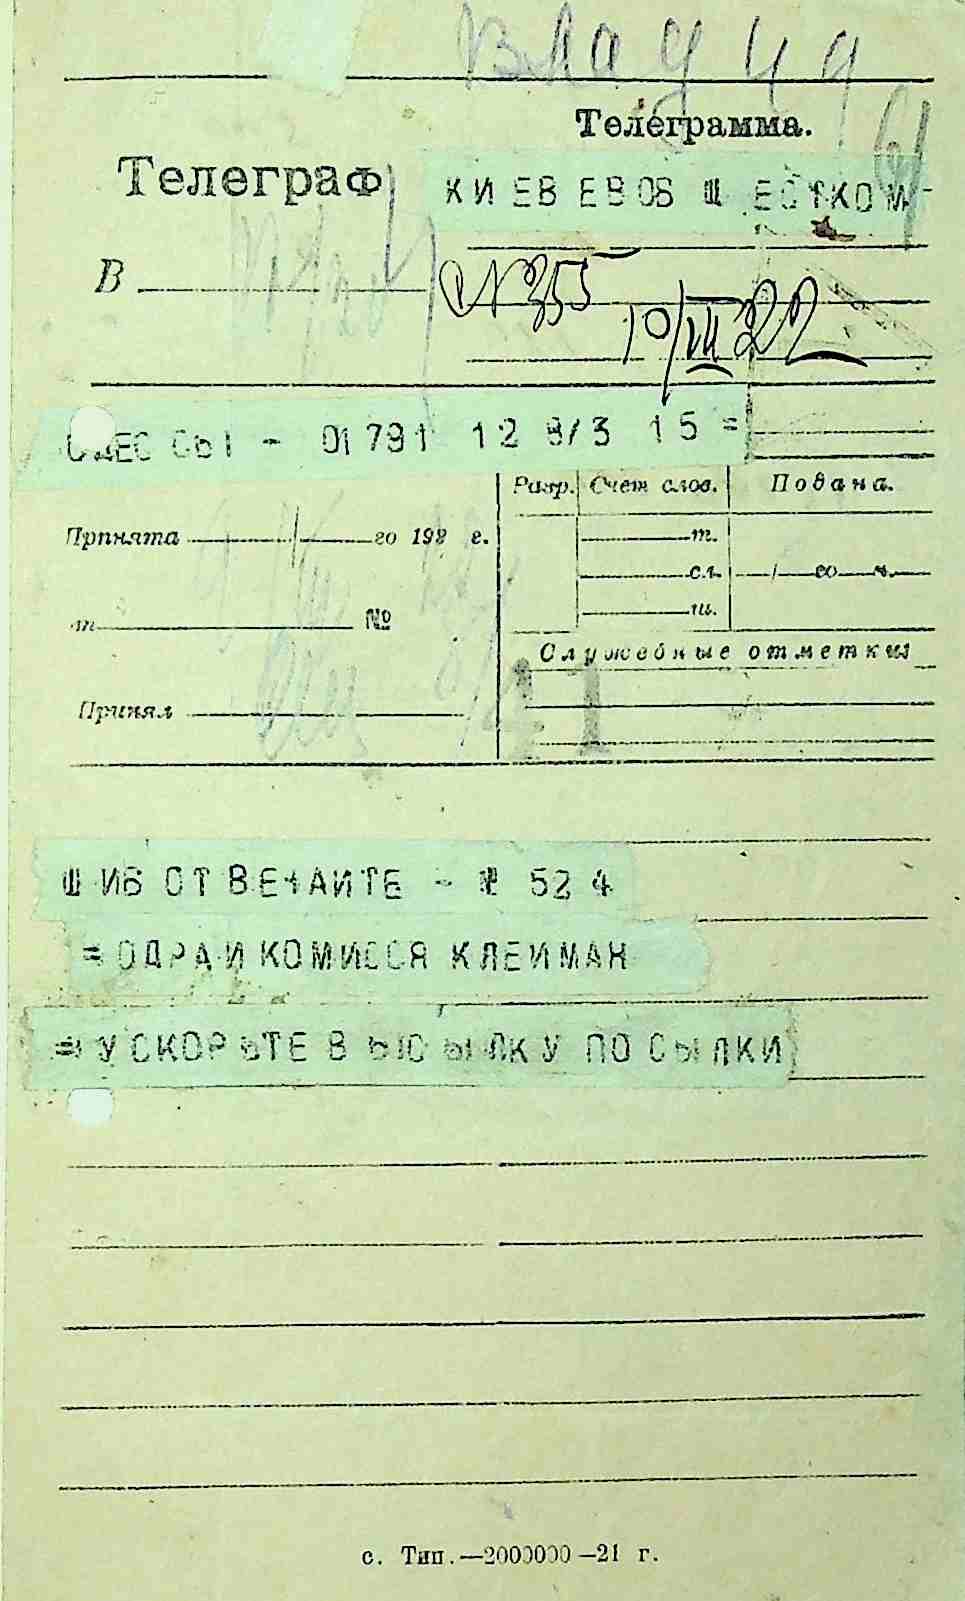 Телеграмма.
Телеграф
КИЕВ ЕВОБЩЕСТКОМ
В
№ 355
10/III 22
ОДЕССЫ - 01791 12 8/3 15 =
Разр. Счет слов. Подана.
Принята го 192 г.
т.
сл. / го ч.
№
ш.
Служебные отметки
Принял
ШИБ ОТВЕЧАИТЕ - № 524
= ОДРАИКОМИССЯ КЛЕИМАН
= УСКОРЬТЕ ВЫСЫЛКУ ПОСЫЛКИ
с. Тип.—2000000—21 г.